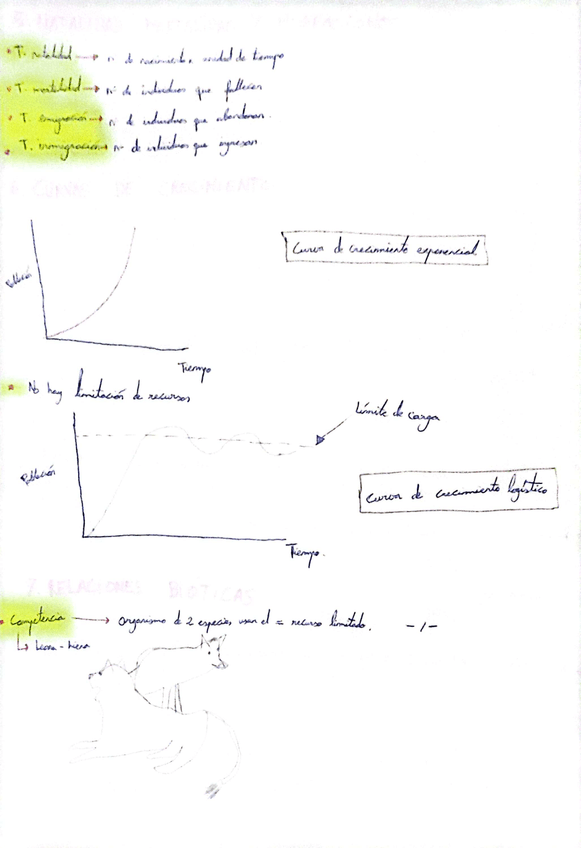 5. NATALIDAD, MORTALIDAD Y MIGRACIONES
T. natalidad → nº de nacimientos unidad de tiempo
T. mortalidad → nº de individuos que fallecen
T. emigración → nº de individuos que abandonan.
T. inmigración → nº de individuos que ingresan
6 CURVAS DE CRECIMIENTO
Curva de crecimiento exponencial
Población
Tiempo
No hay limitación de recursos
Límite de carga
Población
Curva de crecimiento logístico
Tiempo.
7 RELACIONES BIOTICAS
Competencia → Organismo d 2 especies usan el = recurso limitado. -/-
↳ leona - hiena